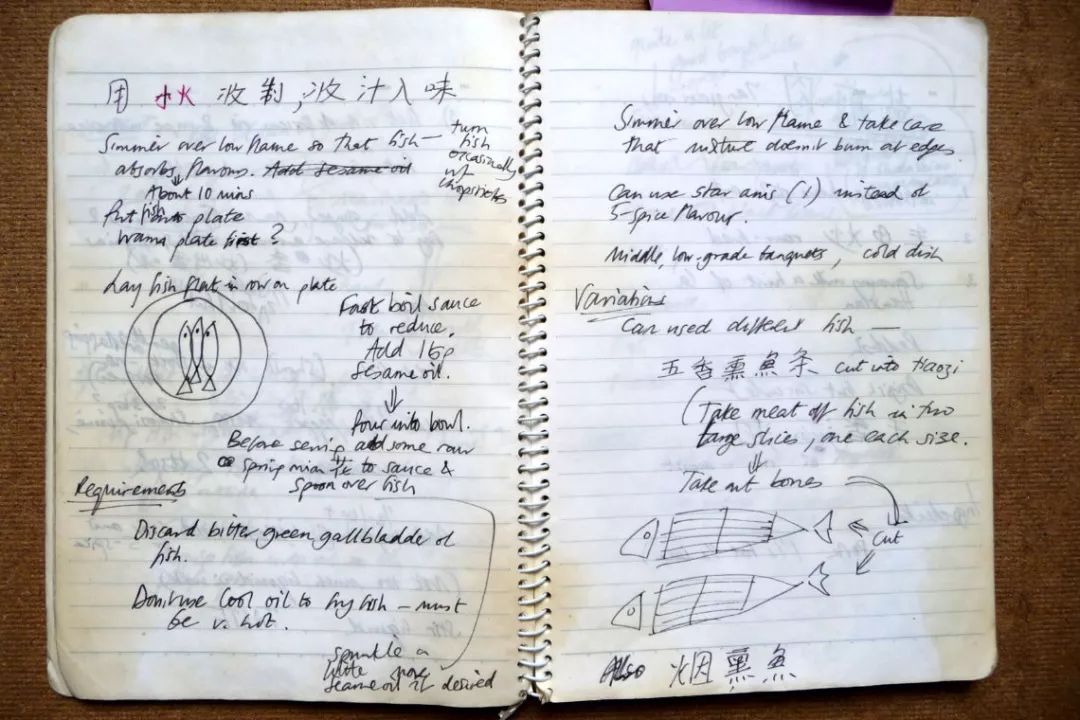 用 小火 收 制, 收 汁 入 味
Simmer over low flame so that fish —
absorbs flavours. Add sesame oil
turn
fish
occasionally
w/
chopsticks
About 10 mins
Put fish onto plate
warm plate first?
Lay fish flat in row on plate
Fast boil sauce
to reduce.
Add 1 tsp
sesame oil.
Pour into bowl.
Before serving add some raw
spring onion 花 to sauce &
spoon over fish
Requirements
Discard bitter green gallbladder of
fish.
Don't use cool oil to fry fish — must
be v. hot.
sprinkle a
little more
sesame oil if desired
Simmer over low flame & take care
that mixture doesn't burn at edges.
Can use star anis (1) instead of
5-spice flavour.
Middle, low-grade banquets, cold dish
Variations
Can used different fish —
五 香 熏 魚 条 cut into tiaozi
(Take meat off fish in two
large slices, one each size.
Take out bones
Cut
Also 烟 熏 魚